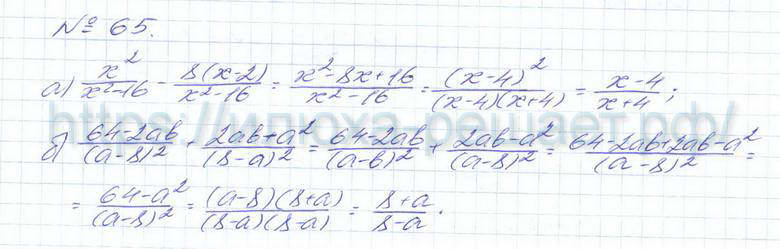 № 65.
а) x²/(x²-16) - 8(x-2)/(x²-16) = (x²-8x+16)/(x²-16) = (x-4)²/((x-4)(x+4)) = (x-4)/(x+4);
б) (64-2ab)/(a-8)² + (2ab+a²)/(8-a)² = (64-2ab)/(a-b)² + (2ab-a²)/(a-8)² = (64-2ab+2ab-a²)/(a-8)² =
= (64-a²)/(a-8)² = (a-8)(8+a)/((8-a)(8-a)) = (8+a)/(8-a).
https://илюха-решает.рф/